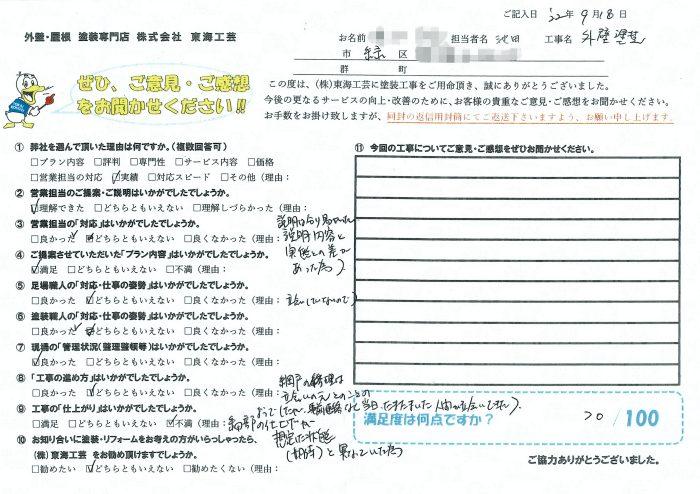 ご記入日 '22年 9月 18日
外壁・屋根 塗装専門店 株式会社 東海工芸
お名前 担当者名 池田 工事名 外壁塗装
市 緑 区
郡 町
ぜひ、ご意見・ご感想
をお聞かせください!!
この度は、(株)東海工芸に塗装工事をご用命頂き、誠にありがとうございました。
今後の更なるサービスの向上・改善のために、お客様の貴重なご意見・ご感想をお聞かせください。
お手数をお掛け致しますが、同封の返信用封筒にてご返送下さいますよう、お願い申し上げます。
① 弊社を選んで頂いた理由は何ですか。(複数回答可)
□プラン内容 □評判 □専門性 □サービス内容 □価格
□営業担当の対応 ☑実績 □対応スピード □その他(理由:
② 営業担当のご提案・ご説明はいかがでしたでしょうか。
☑理解できた □どちらともいえない □理解しづらかった(理由:
③ 営業担当の「対応」はいかがでしたでしょうか。
□良かった ☑どちらともいえない □良くなかった(理由:
説明は分り易かったが
説明内容と
実態との差が
あった為)
④ ご提案させていただいた「プラン内容」はいかがでしたでしょうか。
☑満足 □どちらともいえない □不満(理由:
⑤ 足場職人の「対応・仕事の姿勢」はいかがでしたでしょうか。
□良かった ☑どちらともいえない □良くなかった(理由: 立会していないので)
⑥ 塗装職人の「対応・仕事の姿勢」はいかがでしたでしょうか。
□良かった ☑どちらともいえない □良くなかった(理由:
⑦ 現場の「管理状況(整理整頓等)はいかがでしたでしょうか。
☑良かった □どちらともいえない □良くなかった(理由:
⑧ 「工事の進め方」はいかがでしたでしょうか。
□良かった ☑どちらともいえない □良くなかった(理由:
網戸の修理は
⑨ 工事の「仕上がり」はいかがでしたでしょうか。
□満足 □どちらともいえない ☑不満(理由: 細部の仕上げが
想定した状態
(期待)と異なっていた為
⑩ お知り合いに塗装・リフォームをお考えの方がいらっしゃったら、
(株)東海工芸 をお勧め頂けますでしょうか。
□勧めたい ☑どちらともいえない □勧めたくない(理由:
⑪ 今回の工事についてご意見・ご感想をぜひお聞かせください。
満足度は何点ですか? 70 /100
ご協力ありがとうございました。